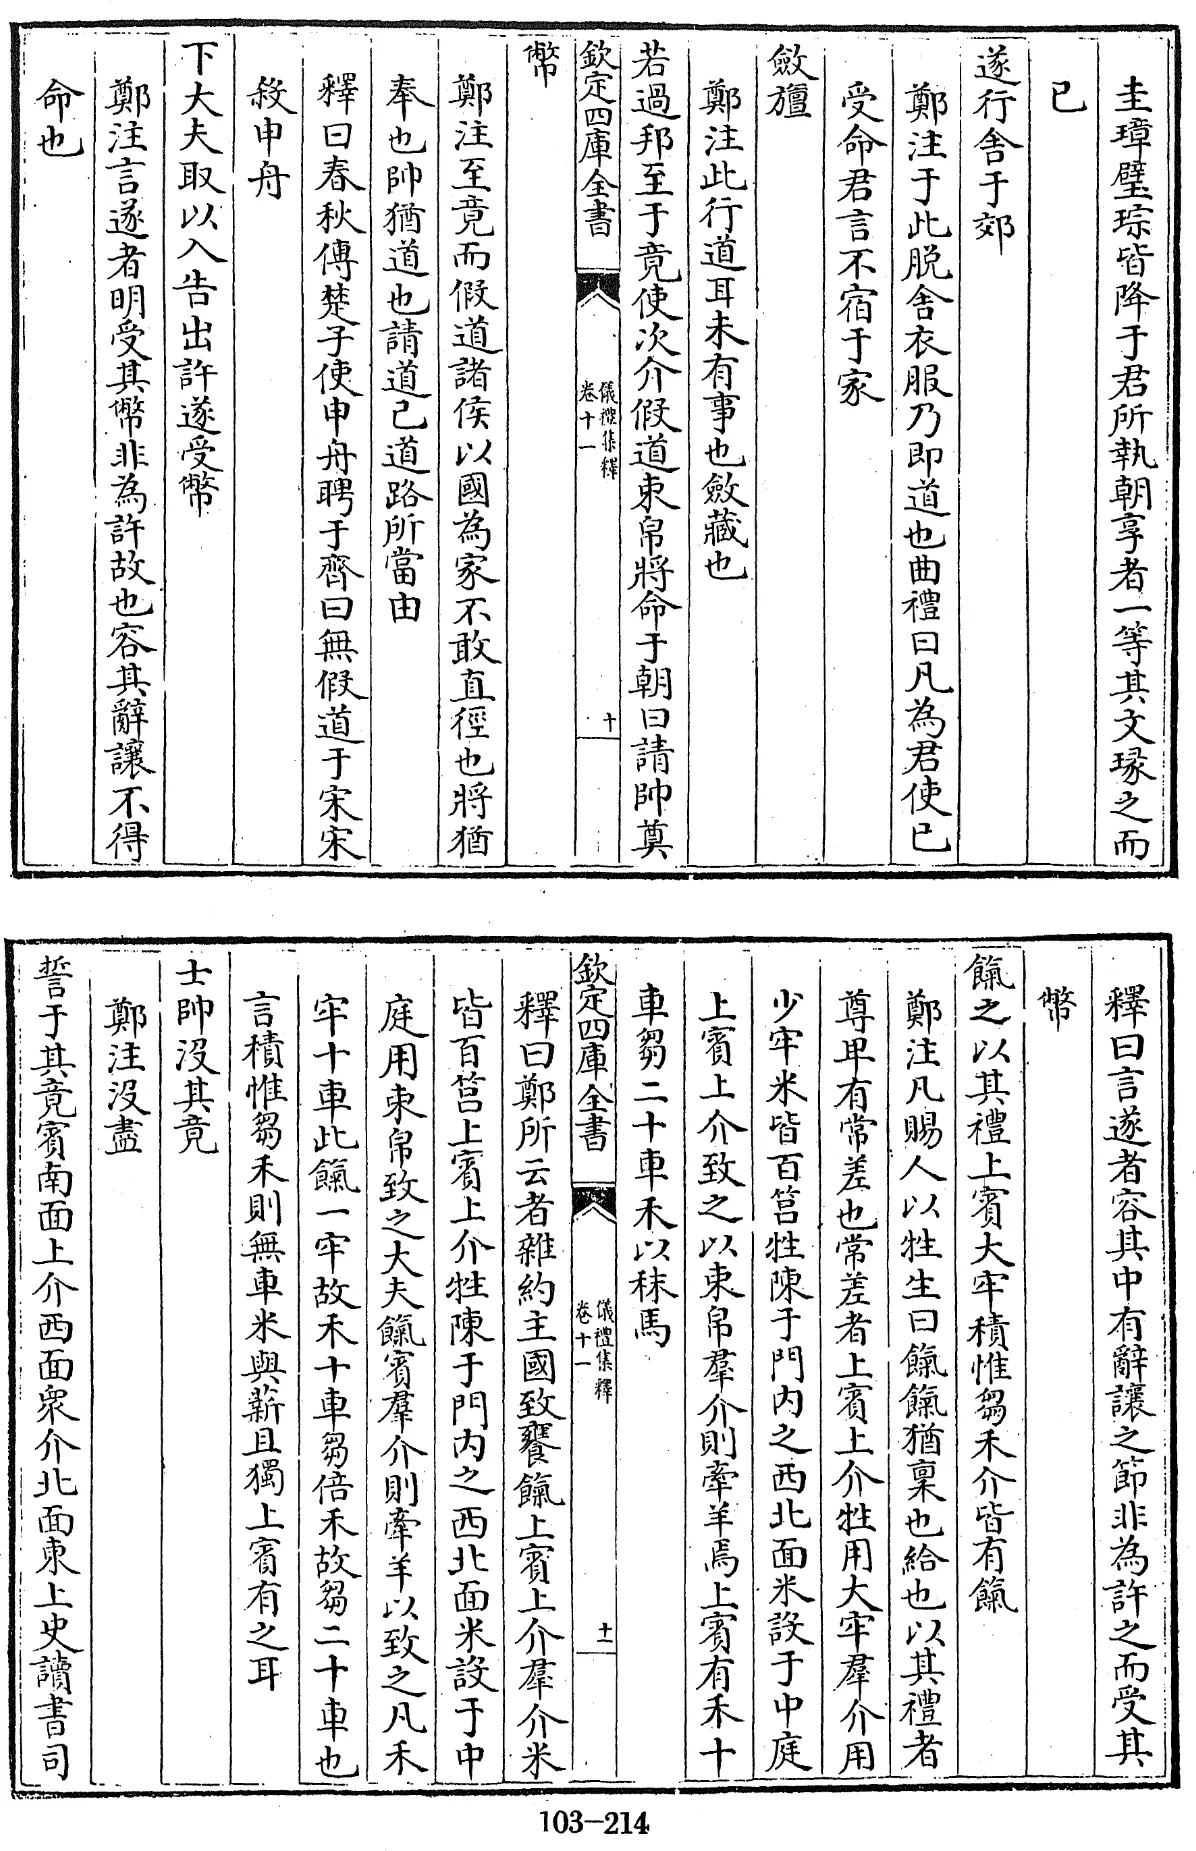 圭璋璧琮皆降于君所執朝享者一等其文瑑之而
已
遂行舍于郊
鄭注于此脱舍衣服乃即道也曲禮曰凡為君使已
受命君言不宿于家
斂旜
鄭注此行道耳未有事也斂藏也
若過邦至于竟使次介假道束帛將命于朝曰請帥奠
欽定四庫全書
儀禮集釋
卷十一
十
幣
鄭注至竟而假道諸侯以國為家不敢直徑也將猶
奉也帥猶道也請道己道路所當由
釋曰春秋傳楚子使申舟聘于齊曰無假道于宋宋
殺申舟
下大夫取以入告出許遂受幣
鄭注言遂者明受其幣非為許故也容其辭讓不得
命也
釋曰言遂者容其中有辭讓之節非為許之而受其
幣
餼之以其禮上賓大牢積惟芻禾介皆有餼
鄭注凡賜人以牲生曰餼餼猶稟也給也以其禮者
尊卑有常差也常差者上賓上介牲用大牢羣介用
少牢米皆百筥牲陳于門内之西北面米設于中庭
上賓上介致之以束帛羣介則牽羊焉上賓有禾十
車芻二十車禾以秣馬
欽定四庫全書
儀禮集釋
卷十一
十一
釋曰鄭所云者雜約主國致饔餼上賓上介羣介米
皆百筥上賓上介牲陳于門内之西北面米設于中
庭用束帛致之大夫餼賓羣介則牽羊以致之凡禾
牢十車此餼一牢故禾十車芻倍禾故芻二十車也
言積惟芻禾則無車米與薪且獨上賓有之耳
士帥沒其竟
鄭注沒盡
誓于其竟賓南面上介西面衆介北面東上史讀書司
103-214